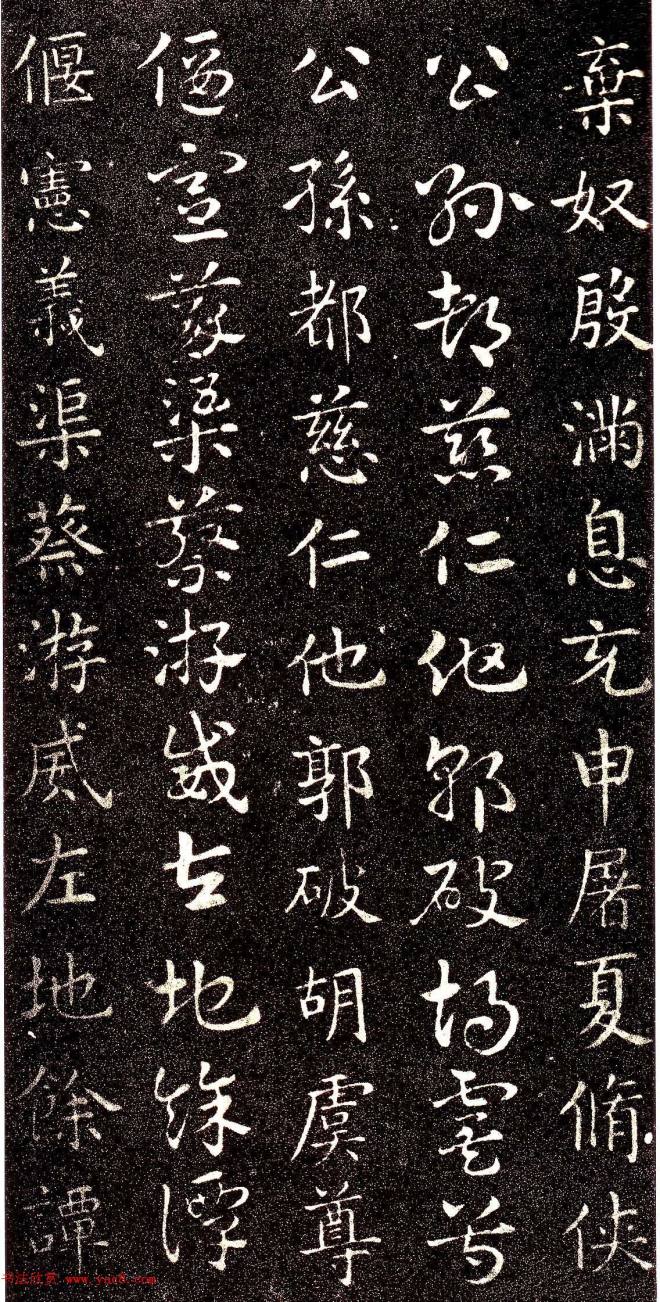 棄奴殷滿息充申屠夏脩俠
公孫都慈仁他郭破胡虞尊
公孫都慈仁他郭破胡虞尊
偃憲義渠蔡游威左地餘譚
偃憲義渠蔡游威左地餘譚
书法欣赏 www.yac8.com